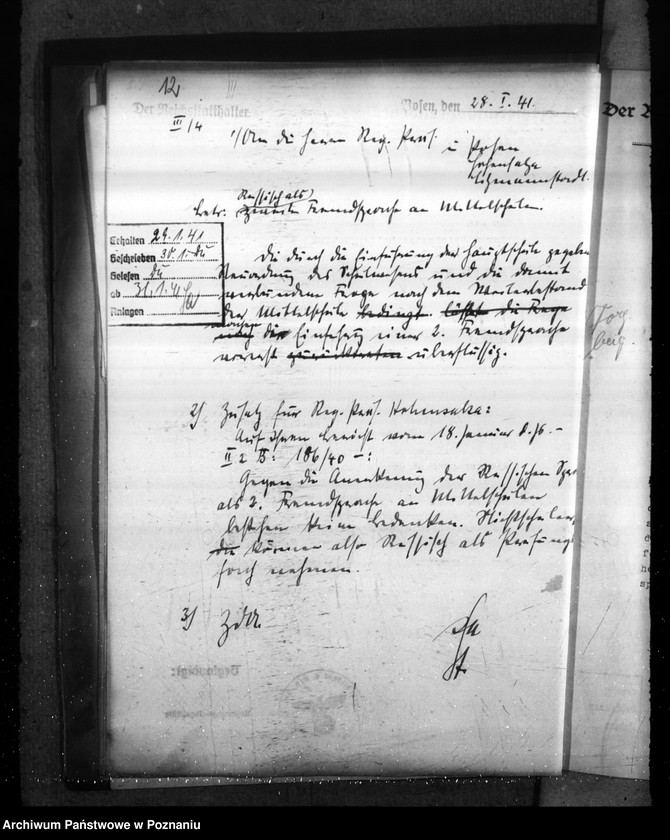 12
III
Der Reichsstatthalter
Posen, den 28. I. 41.
III/4
1/ An die Herren Reg. Präs. in Posen
Hohensalza
Litzmannstadt.
Russisch als
Betr.: zweite Fremdsprache an Mittelschulen.
Erhalten 29.1.41
Geschrieben 30.1.
Gelesen
ab 31.1.41
Anlagen
Die durch die Einführung der Hauptschule gegebene
Neuordnung des Schulwesens und die damit
verbundene Frage nach dem Weiterbestand
der Mittelschule bedingt die Frage
machen die Einführung einer 2. Fremdsprache
vorerst zurücktreten überflüssig.
2) Zusatz für Reg. Präs. Hohensalza:
Auf Ihren Bericht vom 18. Januar d. Js. –
II 2 B: 186/40 –:
Gegen die Anerkennung der Russischen
als 2. Fremdsprache an Mittelschulen
bestehen keine Bedenken.
die können also Russisch als Prüfungs
fach nehmen.
3) ZdA.
Der R
Archiwum Państwowe w Poznaniu